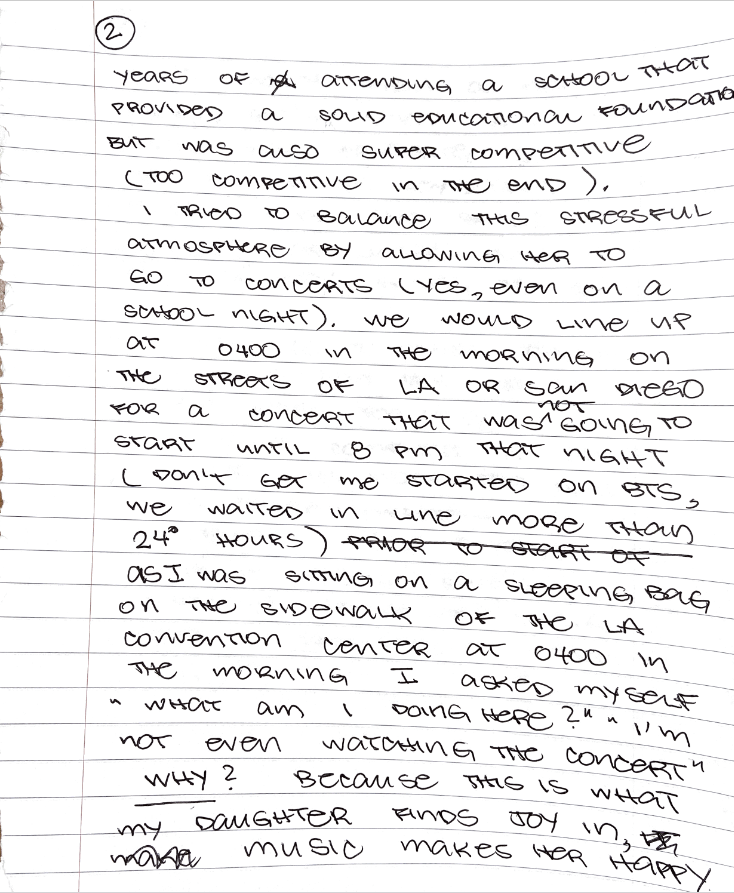 2
YEARS OF ATTENDING A SCHOOL THAT
PROVIDED A SOLID EDUCATIONAL FOUNDATIO
BUT WAS ALSO SUPER COMPETITIVE
(TOO COMPETITIVE IN THE END).
I TRIED TO BALANCE THIS STRESSFUL
ATMOSPHERE BY ALLOWING HER TO
GO TO CONCERTS (YES, EVEN ON A
SCHOOL NIGHT). WE WOULD LINE UP
AT 0400 IN THE MORNING ON
THE STREETS OF LA OR SAN DIEGO
FOR A CONCERT THAT WAS ^NOT GOING TO
START UNTIL 8 PM THAT NIGHT
(DON'T GET ME STARTED ON BTS,
WE WAITED IN LINE MORE THAN
24 HOURS) PRIOR TO START OF
AS I WAS SITTING ON A SLEEPING BAG
ON THE SIDEWALK OF THE LA
CONVENTION CENTER AT 0400 IN
THE MORNING I ASKED MYSELF
"WHAT AM I DOING HERE?" "I'M
NOT EVEN WATCHING THE CONCERT"
WHY? BECAUSE THIS IS WHAT
MY DAUGHTER FINDS JOY IN,
MUSIC MAKES HER HAPPY